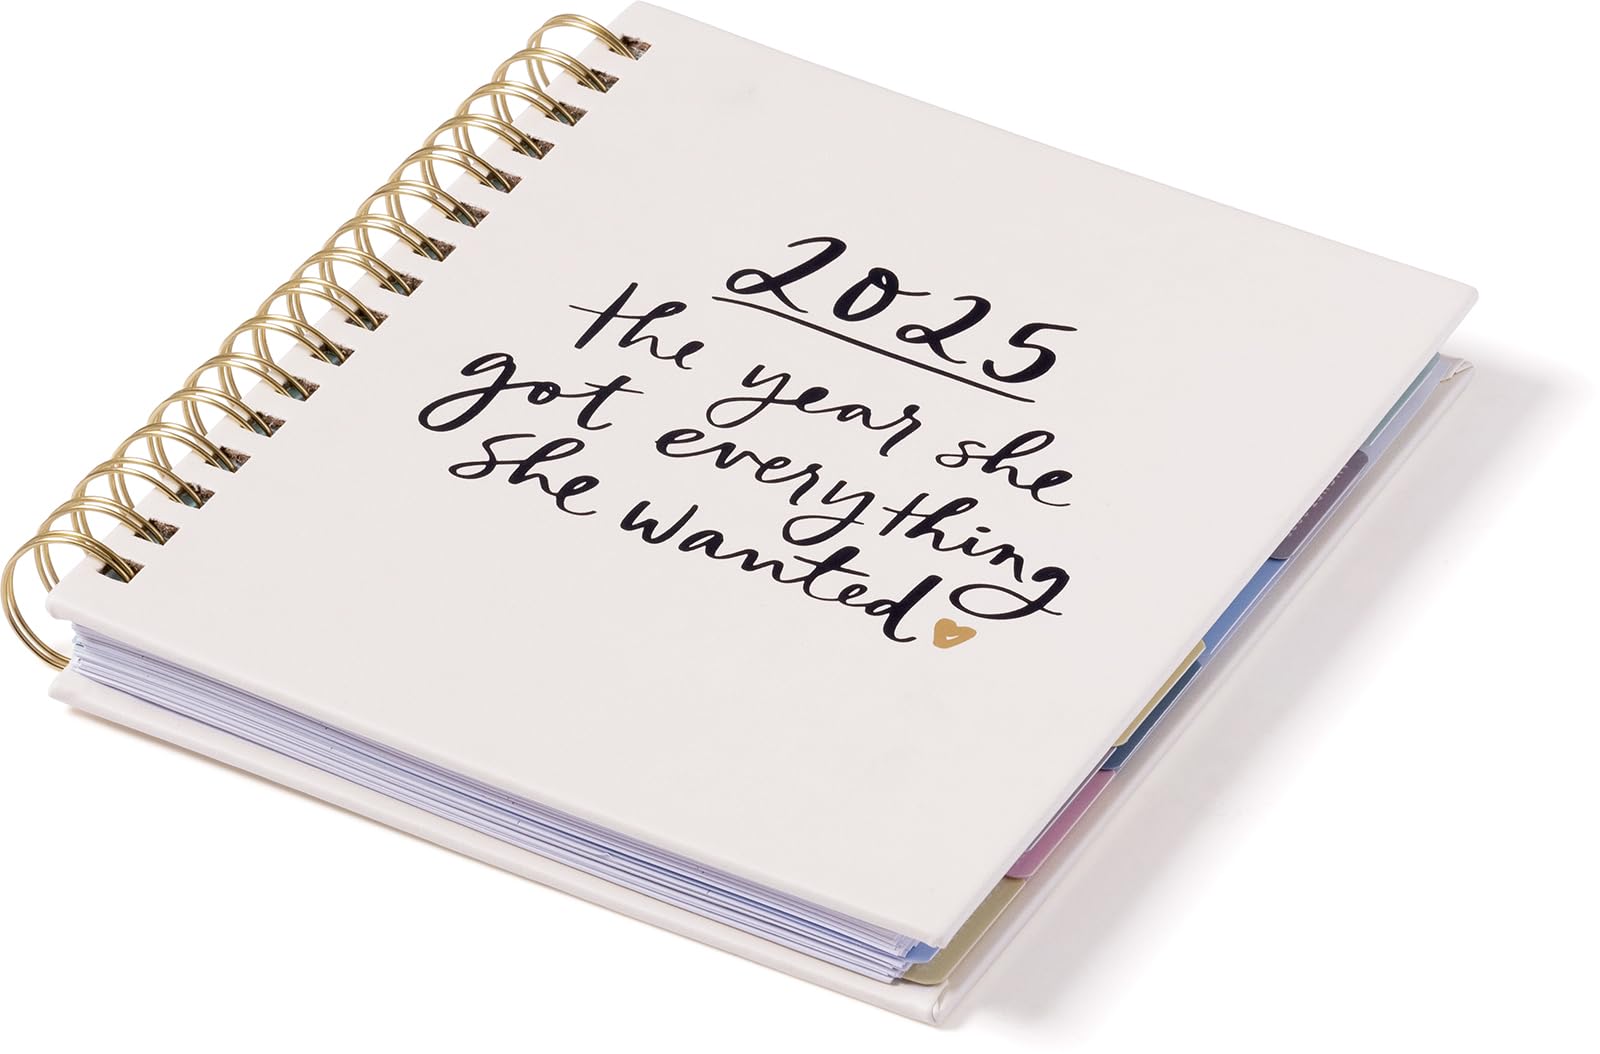 2025
the year she
got everything
she wanted